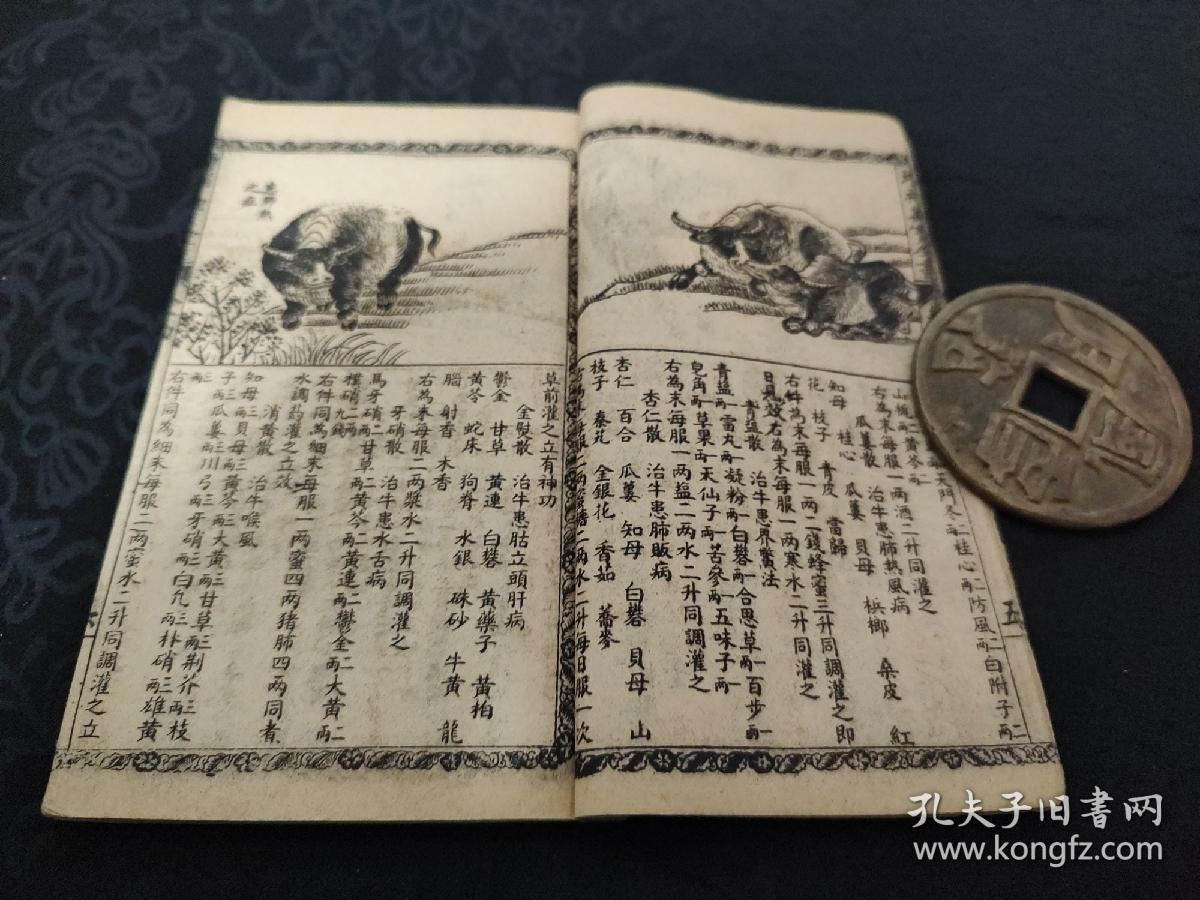 五
山梔
右為末每服一兩酒二升同灌之
瓜蔞散 治牛患肺熱風病
知母 桂心 瓜蔞 貝母 梹榔 桑皮 紅
花 枝子 青皮 當歸
右件為末每服一兩二錢蜂蜜三升同調灌之即
日見效右為末每服一兩寒水二升同灌之
青塩散 治牛患界蟞法
青塩兩一雷丸兩一凝粉兩一白礬兩一合思草兩一百步兩一
皂角兩一草果兩一天仙子兩一苦參兩一五味子兩一
右為末每服一兩塩二兩水二升同調灌之
杏仁散 治牛患肺販病
杏仁 百合 瓜蔞 知母 白礬 貝母 山
枝子 秦艽 金銀花 香茹 蕎麥
二兩水二升每日服一次
之症
草前灌之立有神功
金慰散 治牛患肚立頭肝病
鬱金 甘草 黃連 白礬 黃藥子 黃柏
黃芩 蛇床 狗脊 水銀 硃砂 牛黃 龍
腦 射香 木香
右為末每服二兩漿水二升同調灌之
牙硝散 治牛患水舌病
馬牙硝二兩甘草二兩黃芩二兩黃連二兩鬱金二兩大黃二兩
樸硝九錢
右件同為細末每服一兩蜜四兩猪肺四兩同煮
水調藥灌之立效
消黃散 治牛喉風
知母三兩貝母三兩黃芩三兩大黃三兩甘草三兩荆芥三兩枝
子三兩瓜蔞三兩川弓三兩牙硝三兩白九三兩朴硝三兩雄黃
三兩
右件同為細末每服二兩蜜水二升同調灌之立
孔夫子旧書网
www.kongfz.com